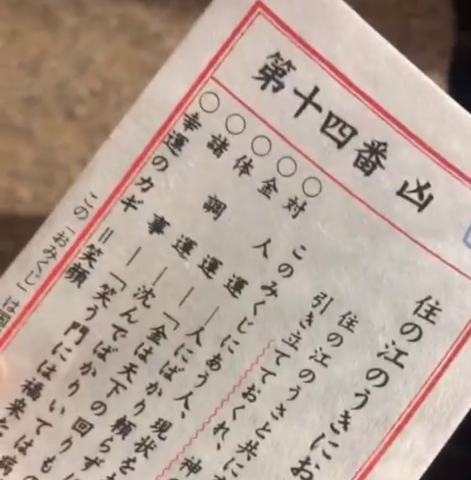 第十四番 凶
住の江のうきにお
住の江のうさと共に
引き立てておくれ、神の
このみくじにあう人、現状を
○対人運―人にばかり頼らず
○金運―「金は天下の回りも
○体調―沈んでばかりいては病
○諸事―「笑う門には福来た
○幸運のカギ＝笑顔
この「おみくじ」は